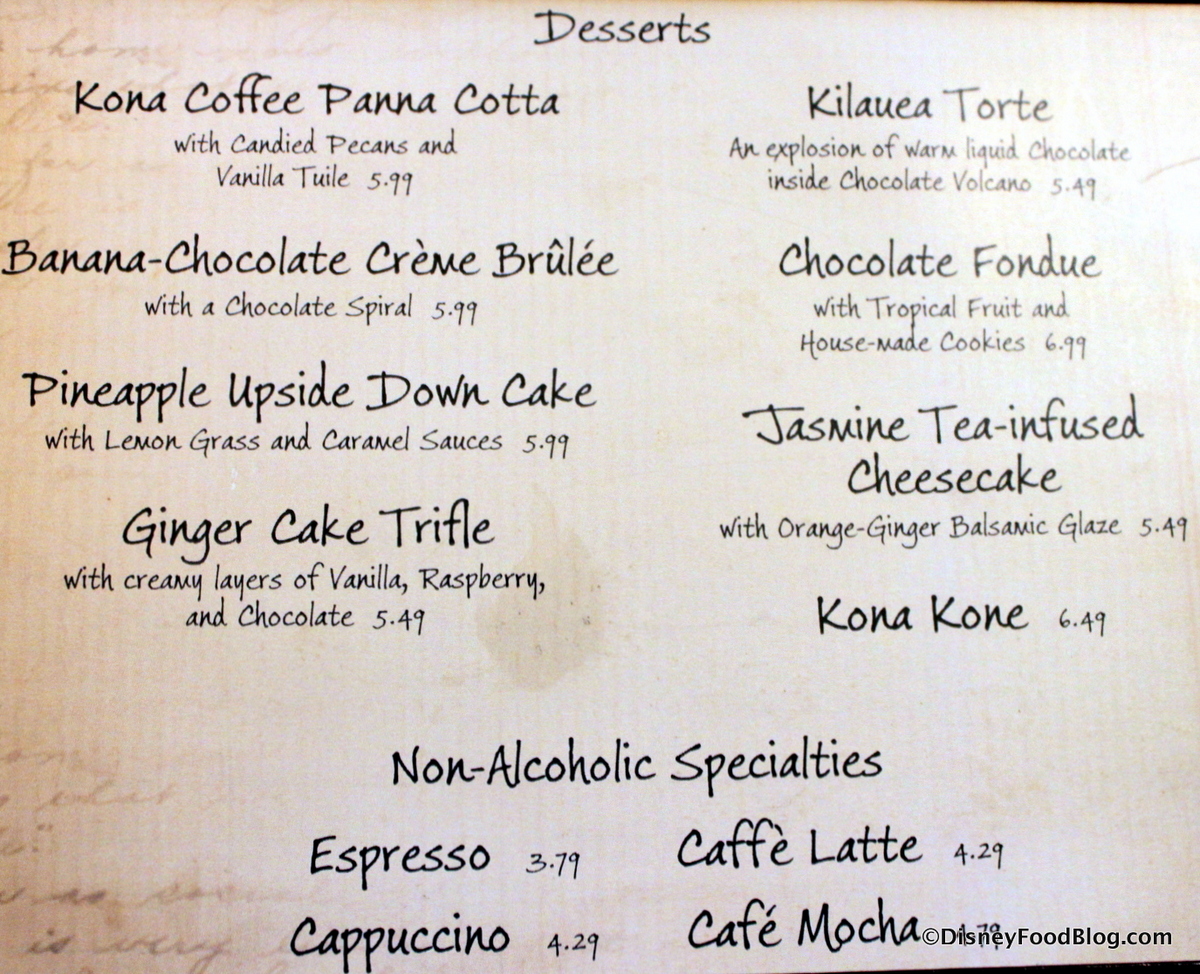 Desserts
Kona Coffee Panna Cotta
with Candied Pecans and
Vanilla Tuile 5.99
Banana-Chocolate Crème Brûlée
with a Chocolate Spiral 5.99
Pineapple Upside Down Cake
with Lemon Grass and Caramel Sauces 5.99
Ginger Cake Trifle
with creamy layers of Vanilla, Raspberry,
and Chocolate 5.49
Kilauea Torte
An explosion of warm liquid Chocolate
inside Chocolate Volcano 5.49
Chocolate Fondue
with Tropical Fruit and
House-made Cookies 6.99
Jasmine Tea-infused
Cheesecake
with Orange-Ginger Balsamic Glaze 5.49
Kona Kone 6.49
Non-Alcoholic Specialties
Espresso 3.79
Caffè Latte 4.29
Cappuccino 4.29
Café Mocha
©DisneyFoodBlog.com